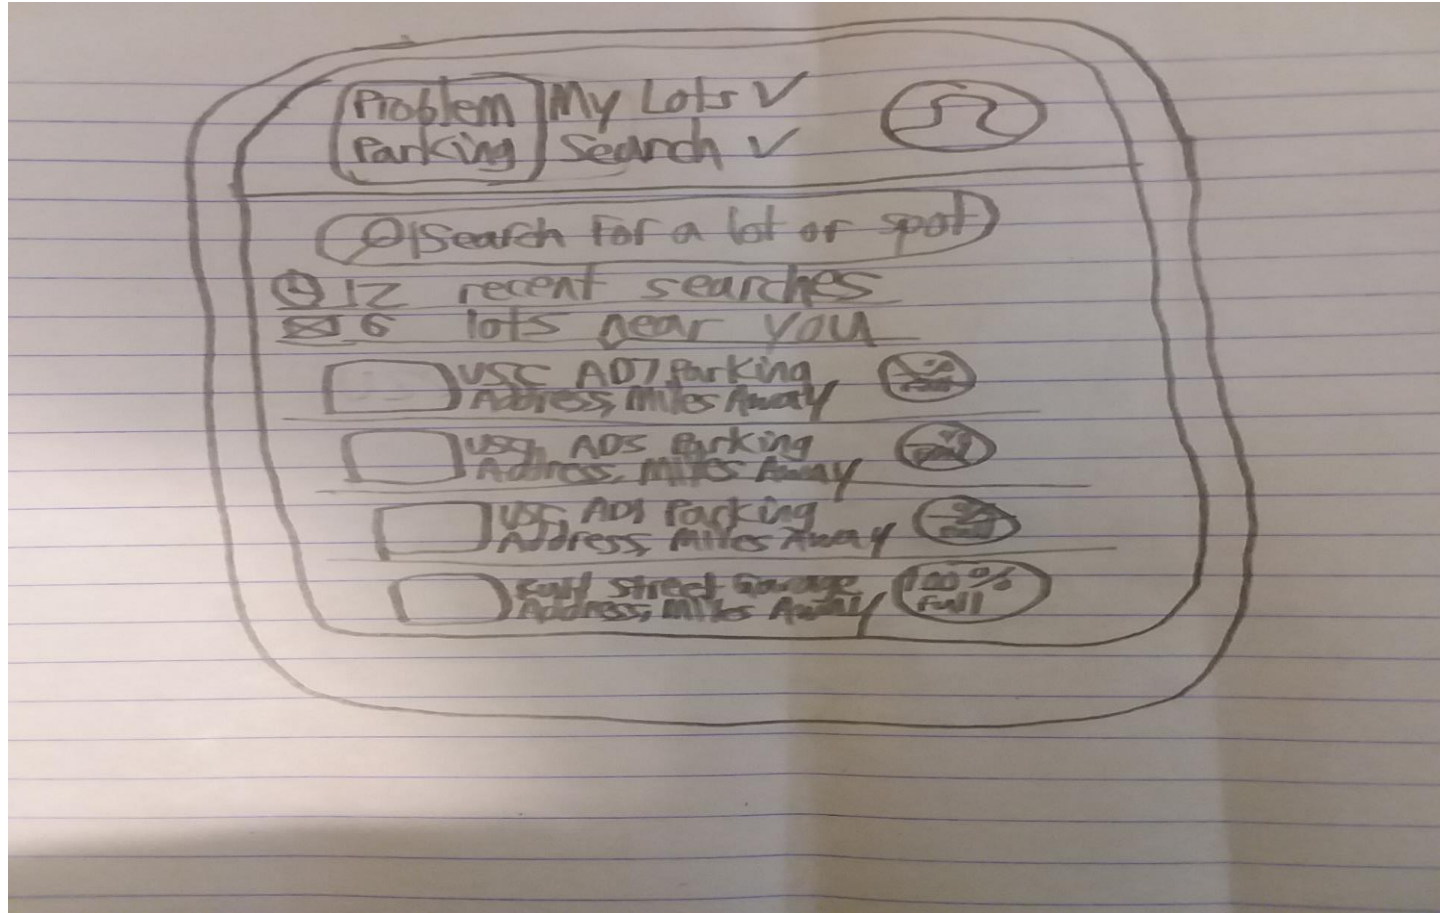 Problem My Lots
Parking Search
Search for a lot or spot
12 recent searches
6 lots near you
USC AD7 Parking
Address, Miles Away
AD5 Parking
Address, Miles Away
USC, AD1 Parking
Address, Miles Away
Street Garage 100%
Address, Miles Away Full